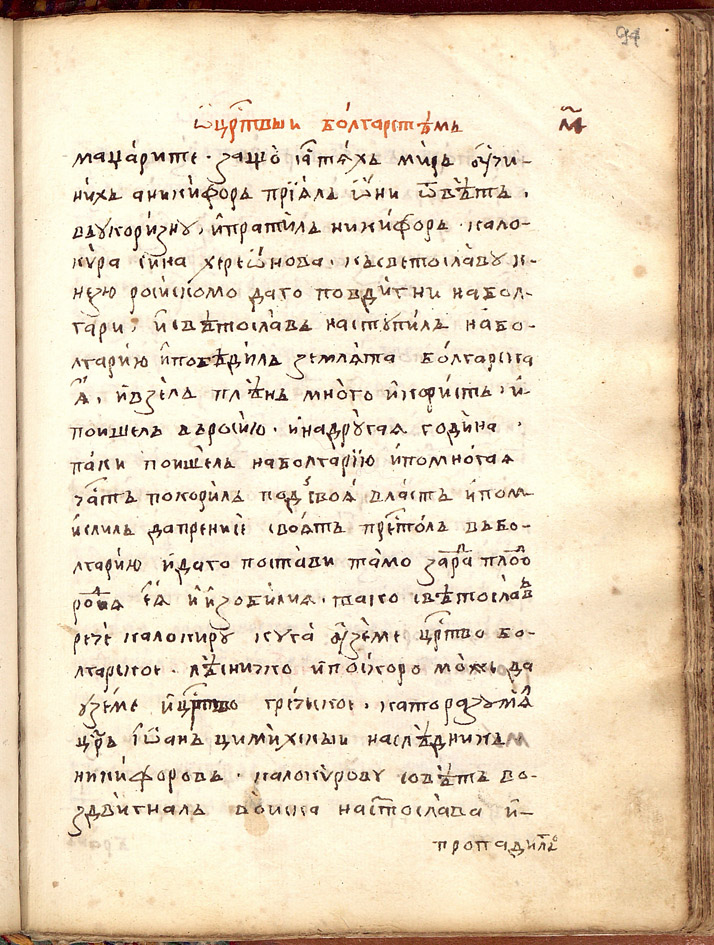 94
ѿ црⷭ҇твыи бо́лгарстѣмь м҃
маџа́рите · защо̀ са̑ тѧ́хь ми̑рь ᲂу҆чи-
ни́хь а ники́форь прїѧ́ль ѡ҆́ни ѿвѣ́ть ·
въ укори́знꙋ, и҆ прати́ль ники́форь · кало-
кѵ̀ра си́на херсѡ́нова · къ светосла́вꙋ к-
незю роси́скомо да го повди́гни на бол-
гари, и҆ свѣ́тосла́вь настꙋпи́ль на бо-
лга́рїю и҆ побѣди́ль землѧ́та бо́лгарска
ѧ҆̀, и҆ взе́ль плѣ́нь мно́го и҆ кори́сть · и҆
поише́ль въ росї́ю · и҆ на дрꙋ́гаѧ годи́на ·
па́ки поише́ль на болга́рїю и҆ помно́гаѧ
ча́сть покори́ль под свою̀ вла́сть и҆ пом-
и́слиль да пренисе́ своѧ́ть престо́ль въ бо-
лга́рїю и҆ да го поста́ви та́мо зара́ди плодо
ро́дїѧ еѧ̀ и҆ и҆зоби́лиѧ · тако свѣтосла́вь
рече́ калокирꙋ кога̀ ᲂу҆зе́ме црⷭ҇тво бо-
лга́рское · лѣ́сничко и҆ поско́ро мо́жь да
ꙋзе́ме и҆ црⷭ҇тво гре́ческое · като разꙋмѧ̀
црь҃ їѡ҆́ань цими́хскыи наслѣ́дникь
ники́форовь · калокѵ́ровꙋ совѣ́ть во-
здви́гналь во́иска на стосла́ва и҆-
пропадиль